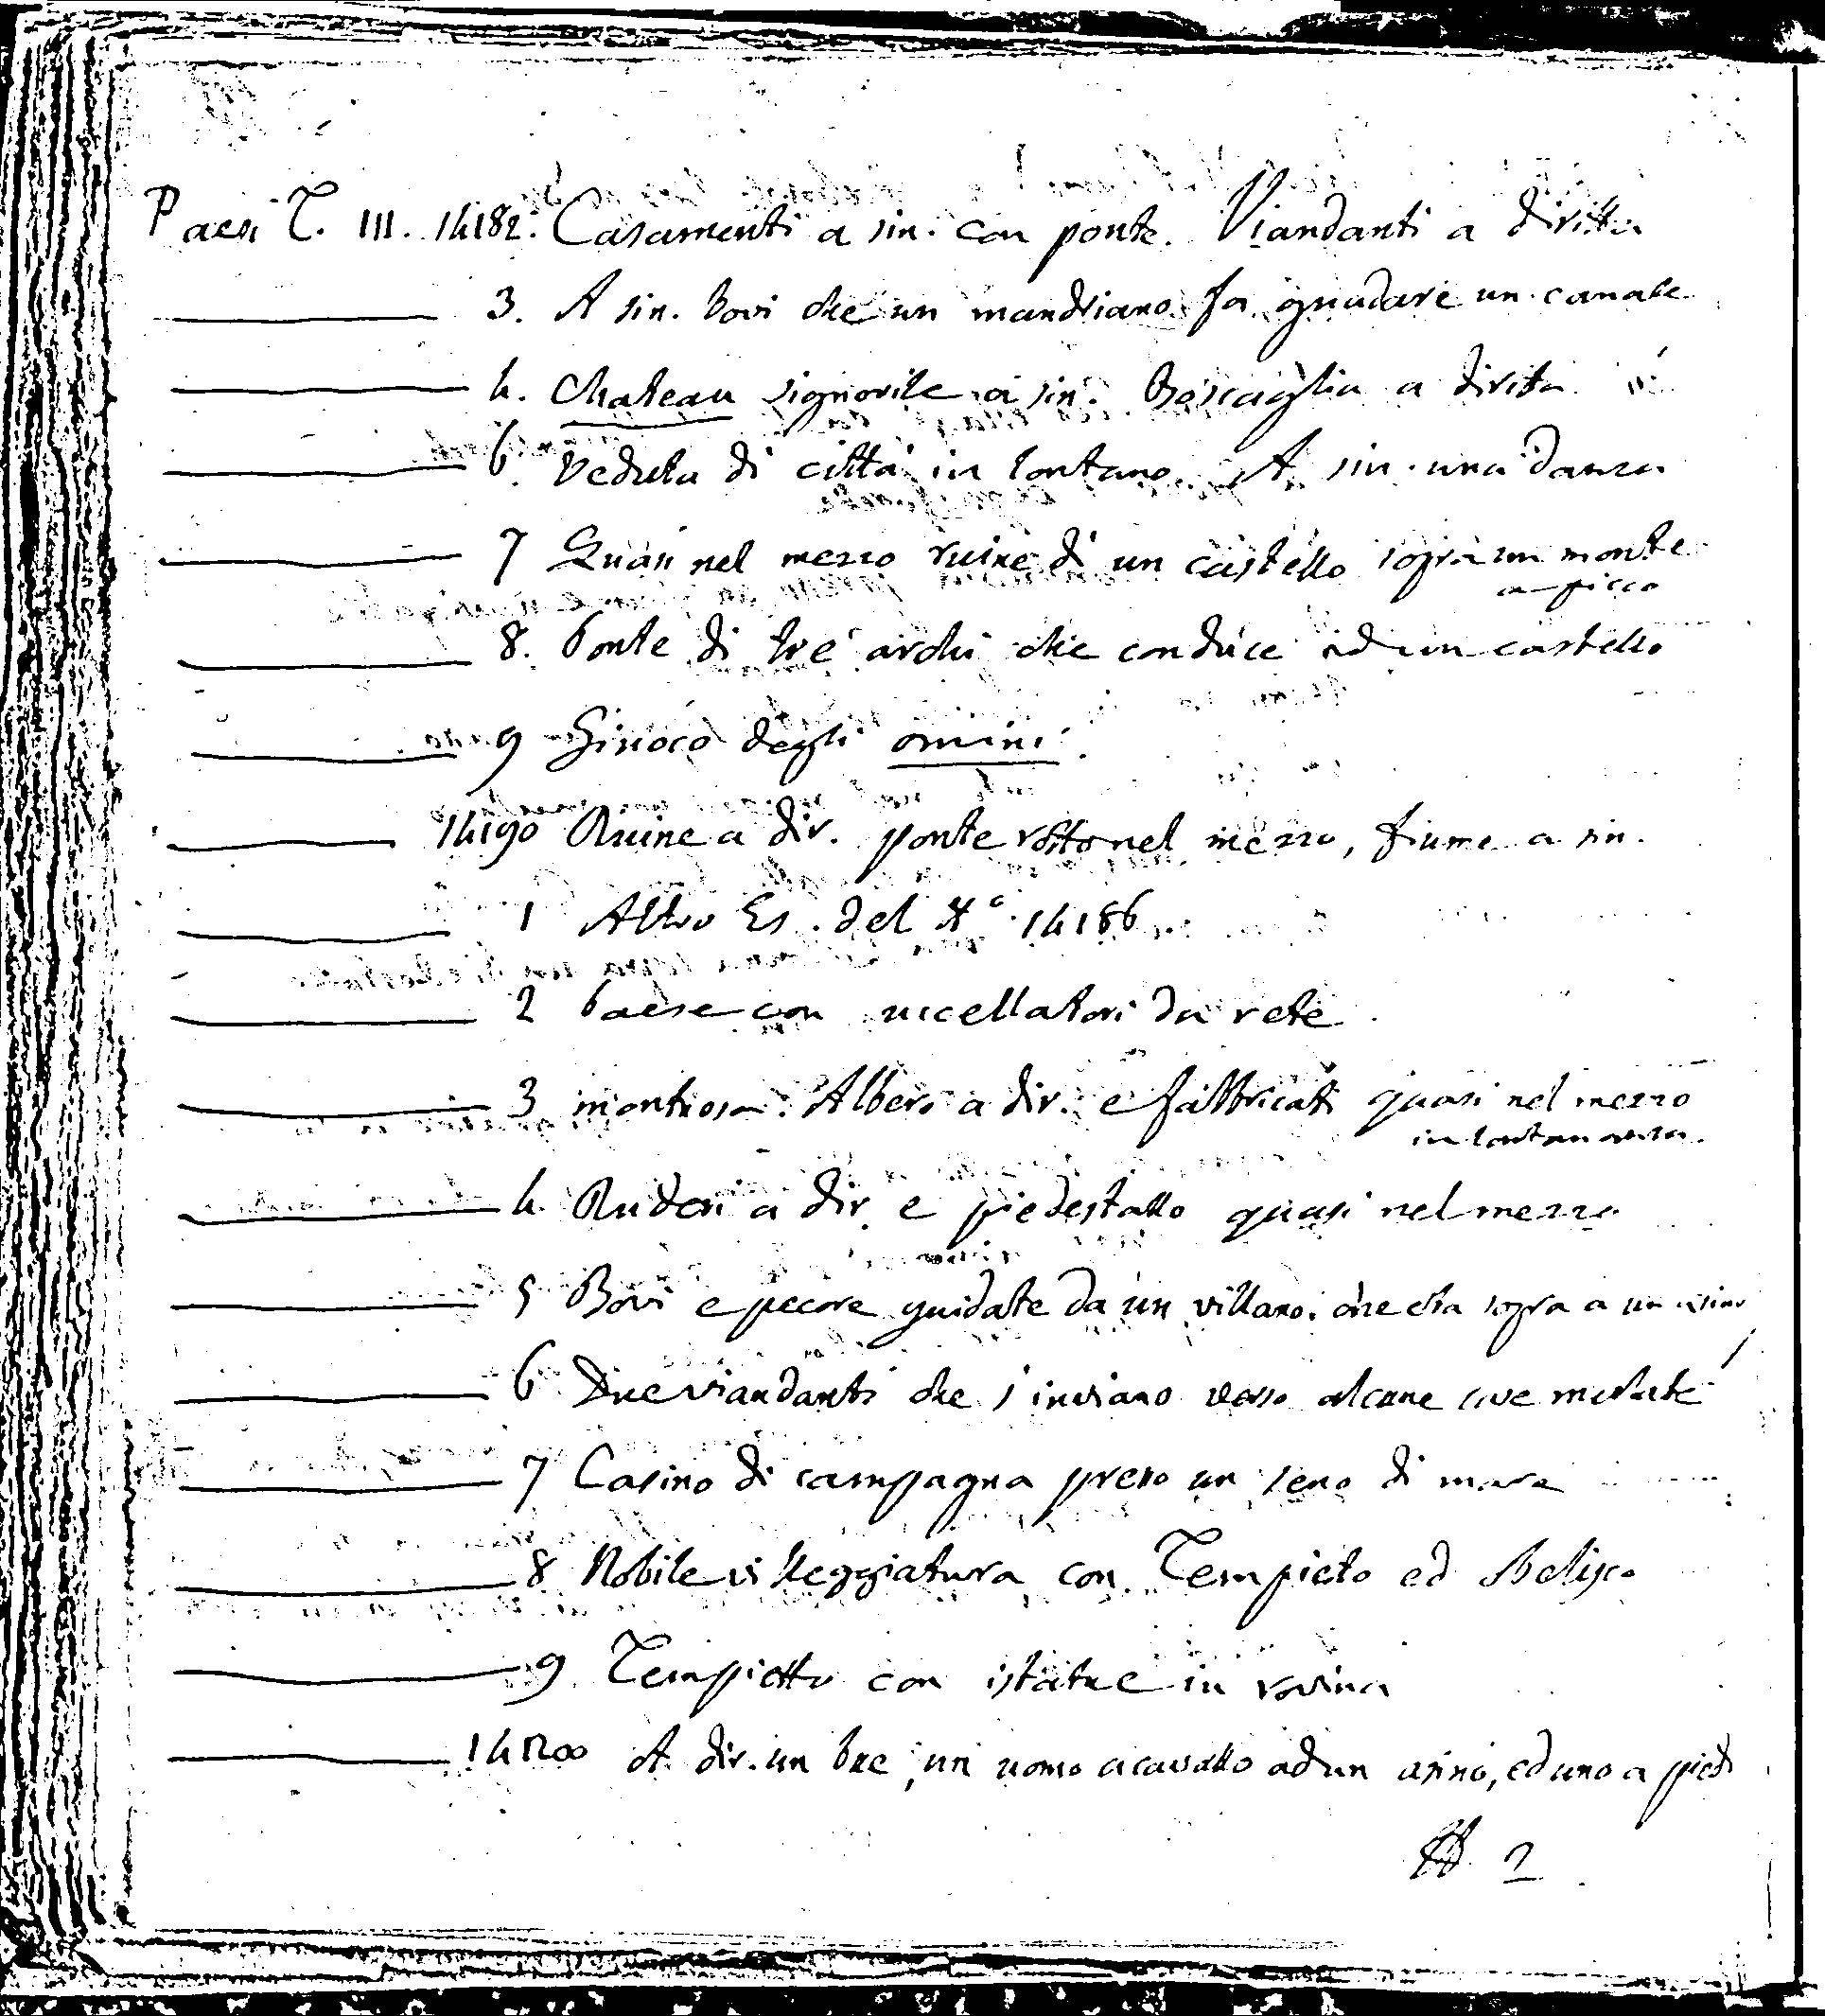 Paesi T. III. 14182. Casamenti a sin. con ponte. Viandanti a diritta
3. A sin. bovi che un mandriano fa guadare un canale
4. Chateau signorile a sin. Boscaglia a diritta
6. Veduta di città in lontano. A sin. una danza
7 Quasi nel mezzo ruine di un castello sopra un monte
a picco
8. Ponte di tre archi che conduce ad un castello
9 Giuoco degli omini
14190 Ruine a dir. ponte rotto nel mezzo, fiume a sin.
1 Altro Es. del N.º 14186.
2 Paese con uccellatori da rete
3 montuosa. Albero a dir. e fabbricati quasi nel mezzo
in lontananza.
4 Ruderi a dir. e piedestallo quasi nel mezzo
5 Bovi e pecore guidate da un villano che sta sopra a un asino
6 Due viandanti che s'inviano verso alcune case murate
7 Casino di campagna preso un seno di mare
8 Nobile villeggiatura con Tempieto ed Obelisco
9 Tempietto con istatue in rovina
14200 A dir. un bue, un uomo a cavallo ad un asino, ed uno a piedi
2